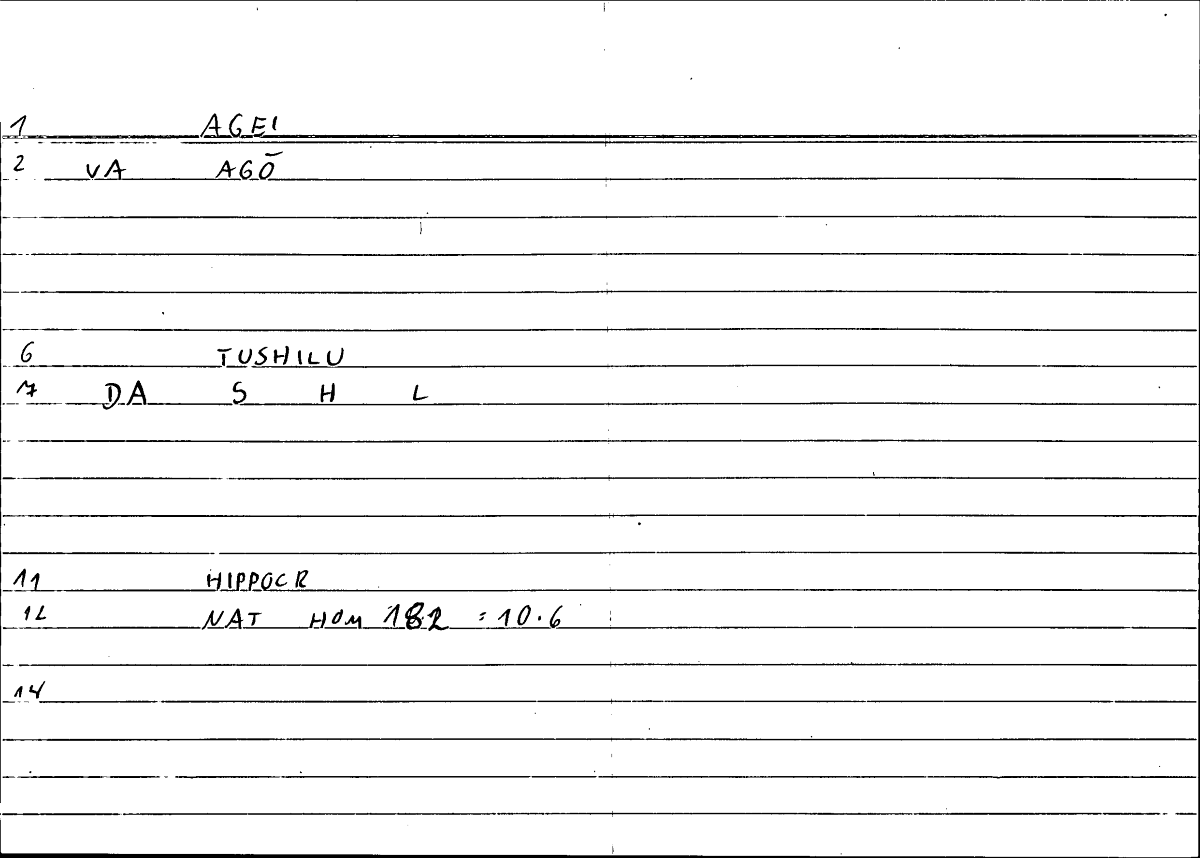 1 AGEI
2 VA AGŌ
6 TUSHILU
7 DA S H L
11 HIPPOCR
12 NAT HOM 182 = 10.6
14